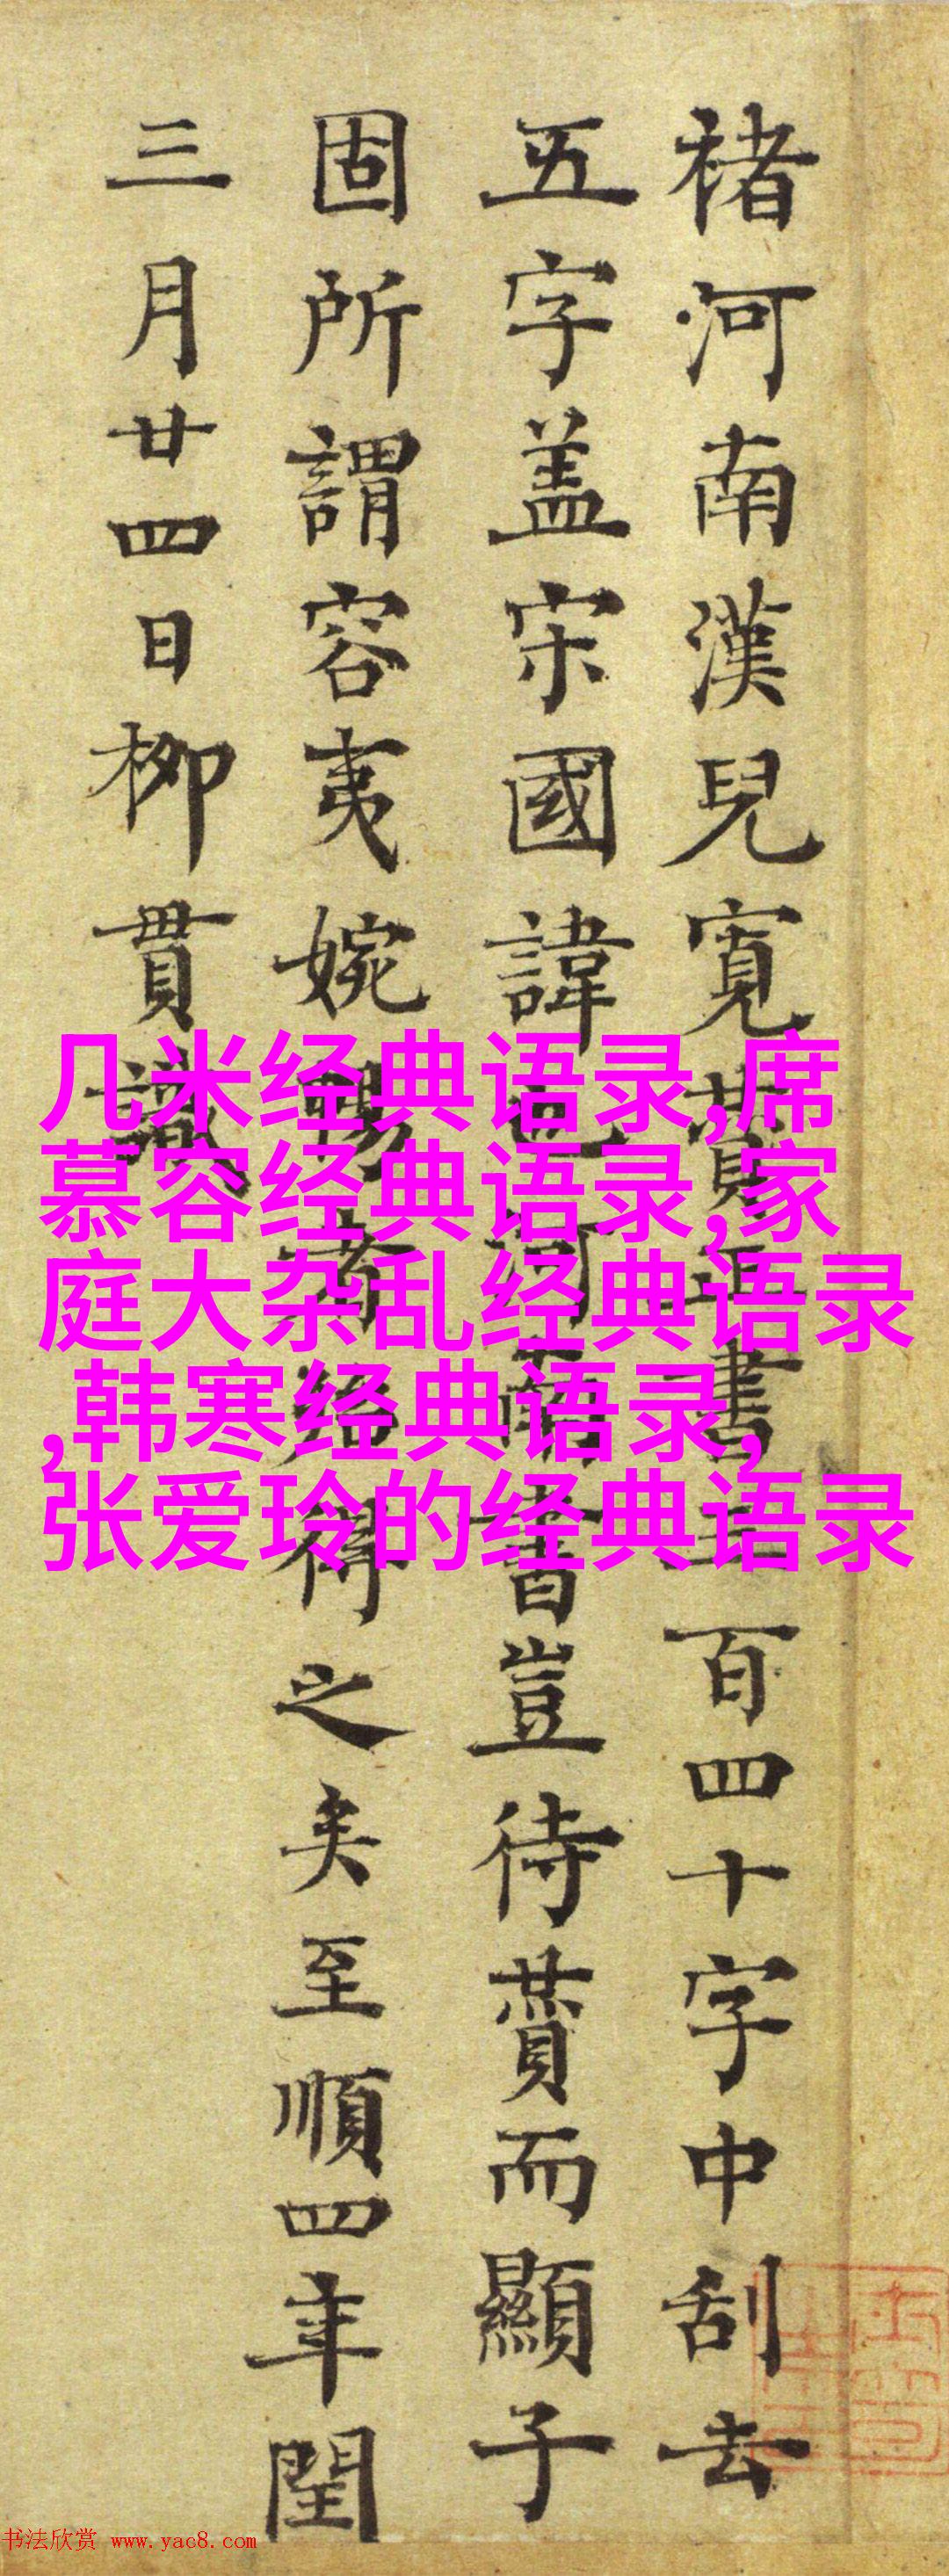 褚河南漢兒寬贊正書三百四十字中刮去
五字盖宋國諱也河南書豈待贊而顯子
固所謂容夷婉暢蓄經得之矣至順四年閏
三月廿四日柳貫識
几米经典语录,席
慕容经典语录,家
庭大杂乱经典语录
,韩寒经典语录,
张爱玲的经典语录
书法欣赏 www.yac8.com